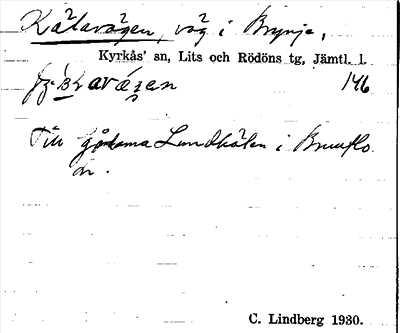 Kälavägen, väg i Brynje,
Kyrkås' sn, Lits och Rödöns tg, Jämtl. l.
146
Till gårdarna Lundkälen i Brunflo
sn.
C. Lindberg 1930.